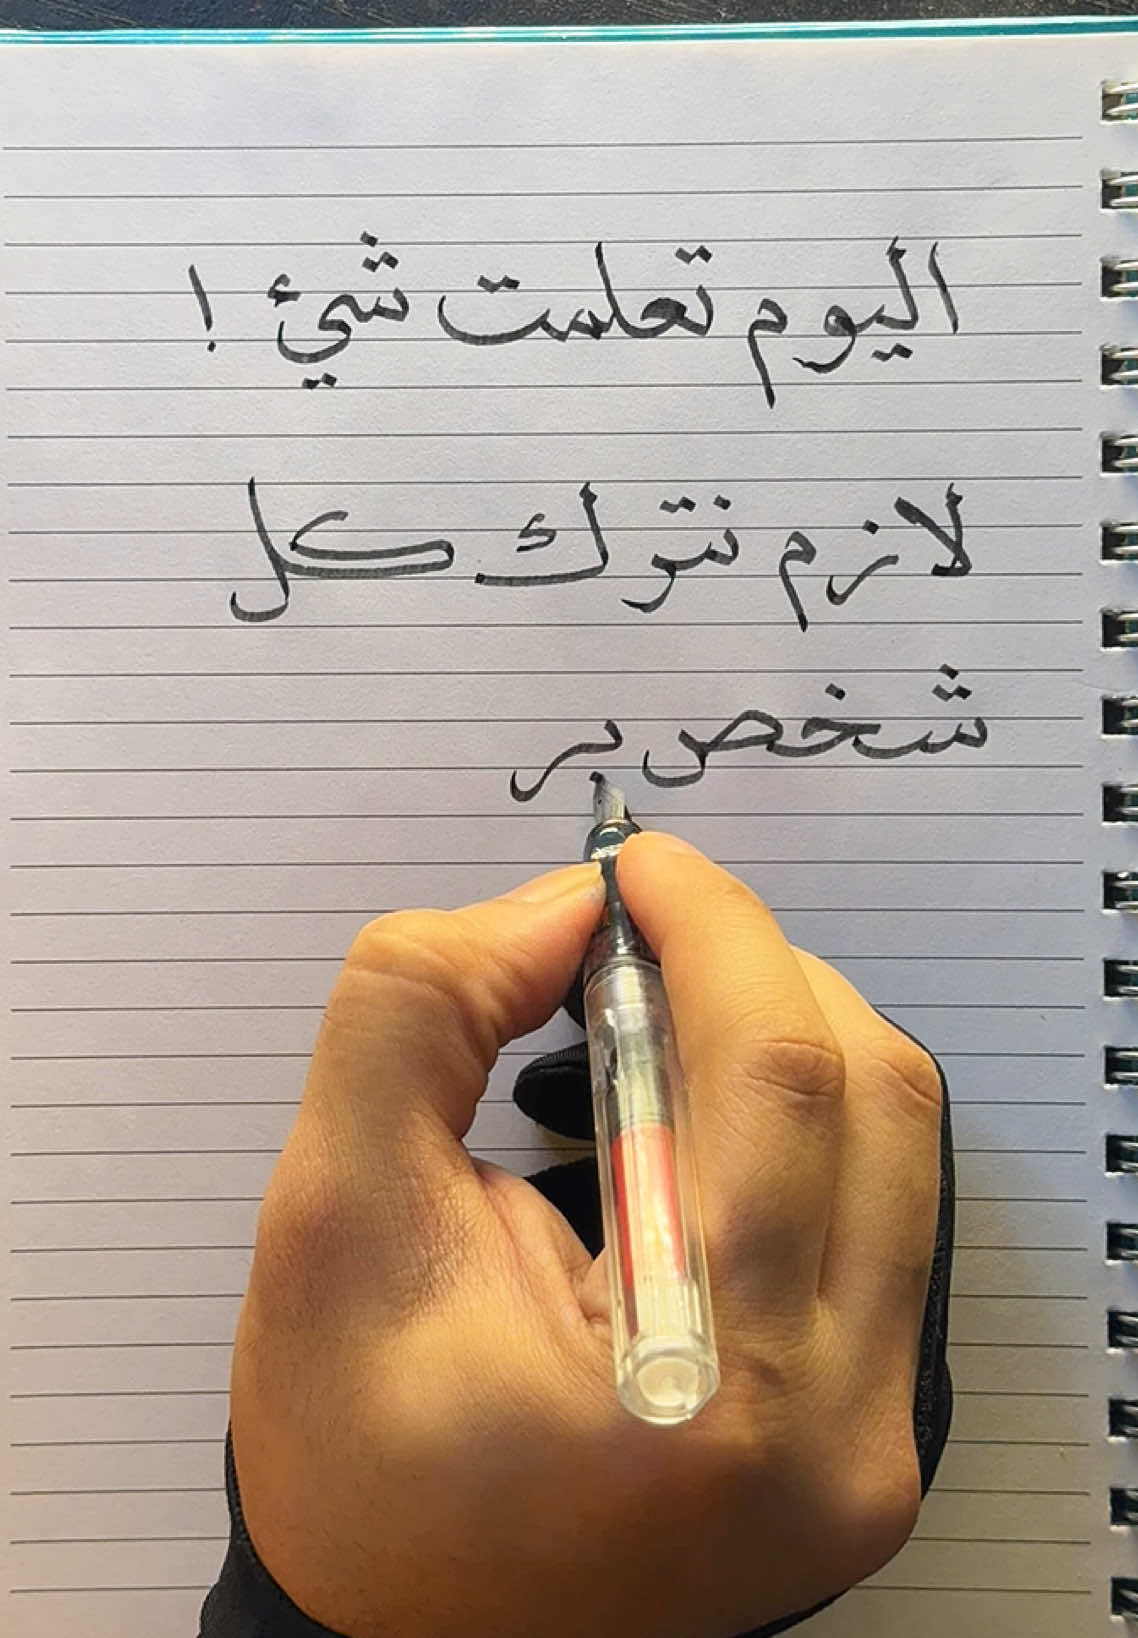 اليوم تعلمت شيئ !
لازم نترك كل
شخص بر